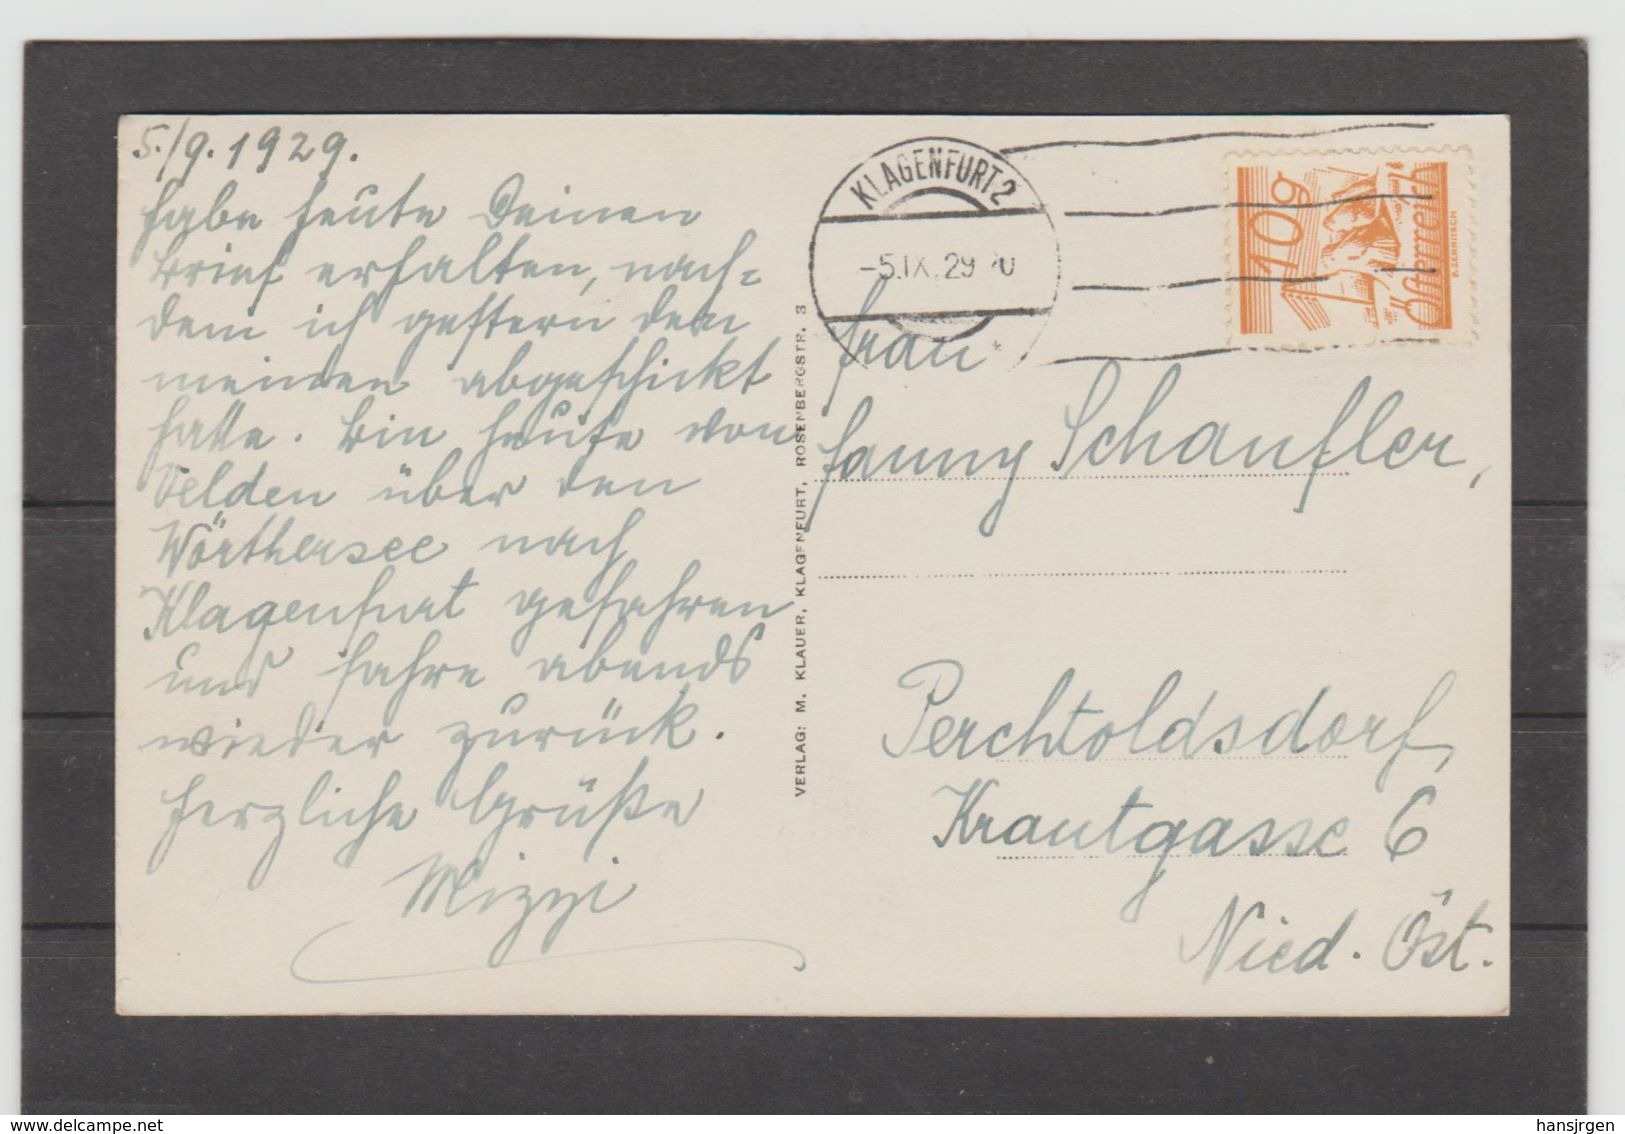 5./9. 1929.
Habe heute Deinen
Brief erhalten, nach=
dem ich gestern den
meinen abgeschickt
hatte. Bin heute von
Velden über den
Wörthersee nach
Klagenfurt gefahren
und fahre abends
wieder zurück.
Herzliche Grüße
Mizzi
VERLAG: M. KLAUER, KLAGENFURT, ROSENBERGSTR. 3
KLAGENFURT 2
-5.IX.29
10g
Österreich
Frau
Fanny Schaufler,
Perchtoldsdorf,
Krautgasse 6
Nied. Öst.
www.delcampe.net
hansjrgen